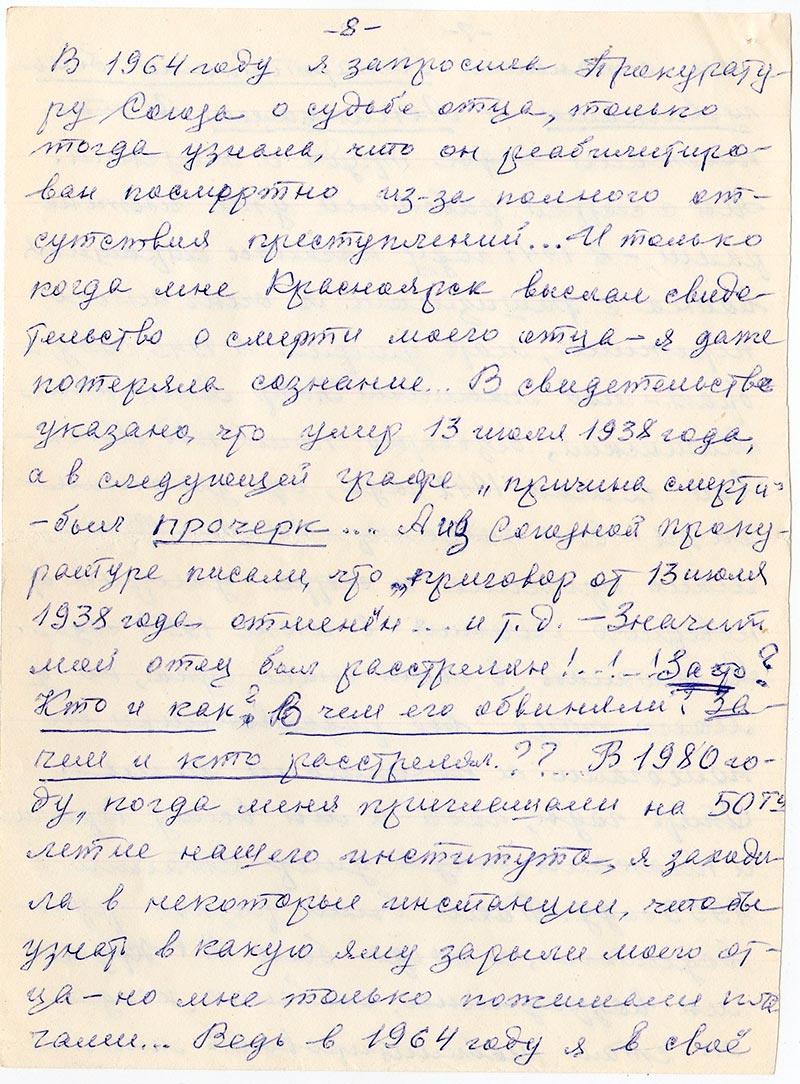 -8-
В 1964 году я запросила Прокурату-
ру Союза о судьбе отца, только
тогда узнала, что он реабилитиро-
ван посмертно из-за полного от-
сутствия преступлений... И только
когда мне Красноярск выслал свиде-
тельство о смерти моего отца - я даже
потеряла сознание... В свидетельстве
указано, что умер 13 июля 1938 года,
а в следующей графе „причина смерти"
- был прочерк .... А из Союзной проку-
ратуре писали, что „приговор от 13 июля
1938 года отменён ... и т.д. - Значит
мой отец был расстрелян !-!-! За что?
Кто и как? В чем его обвиняли? За-
чем и кто расстрелял.?? В 1980 го-
ду, когда меня приглашали на 50ти
летие нашего института, я заходи-
ла в некоторые инстанции, чтобы
узнать в какую яму зарыли моего от-
ца - но мне только пожимали пле
чами... Ведь в 1964 году я в своё